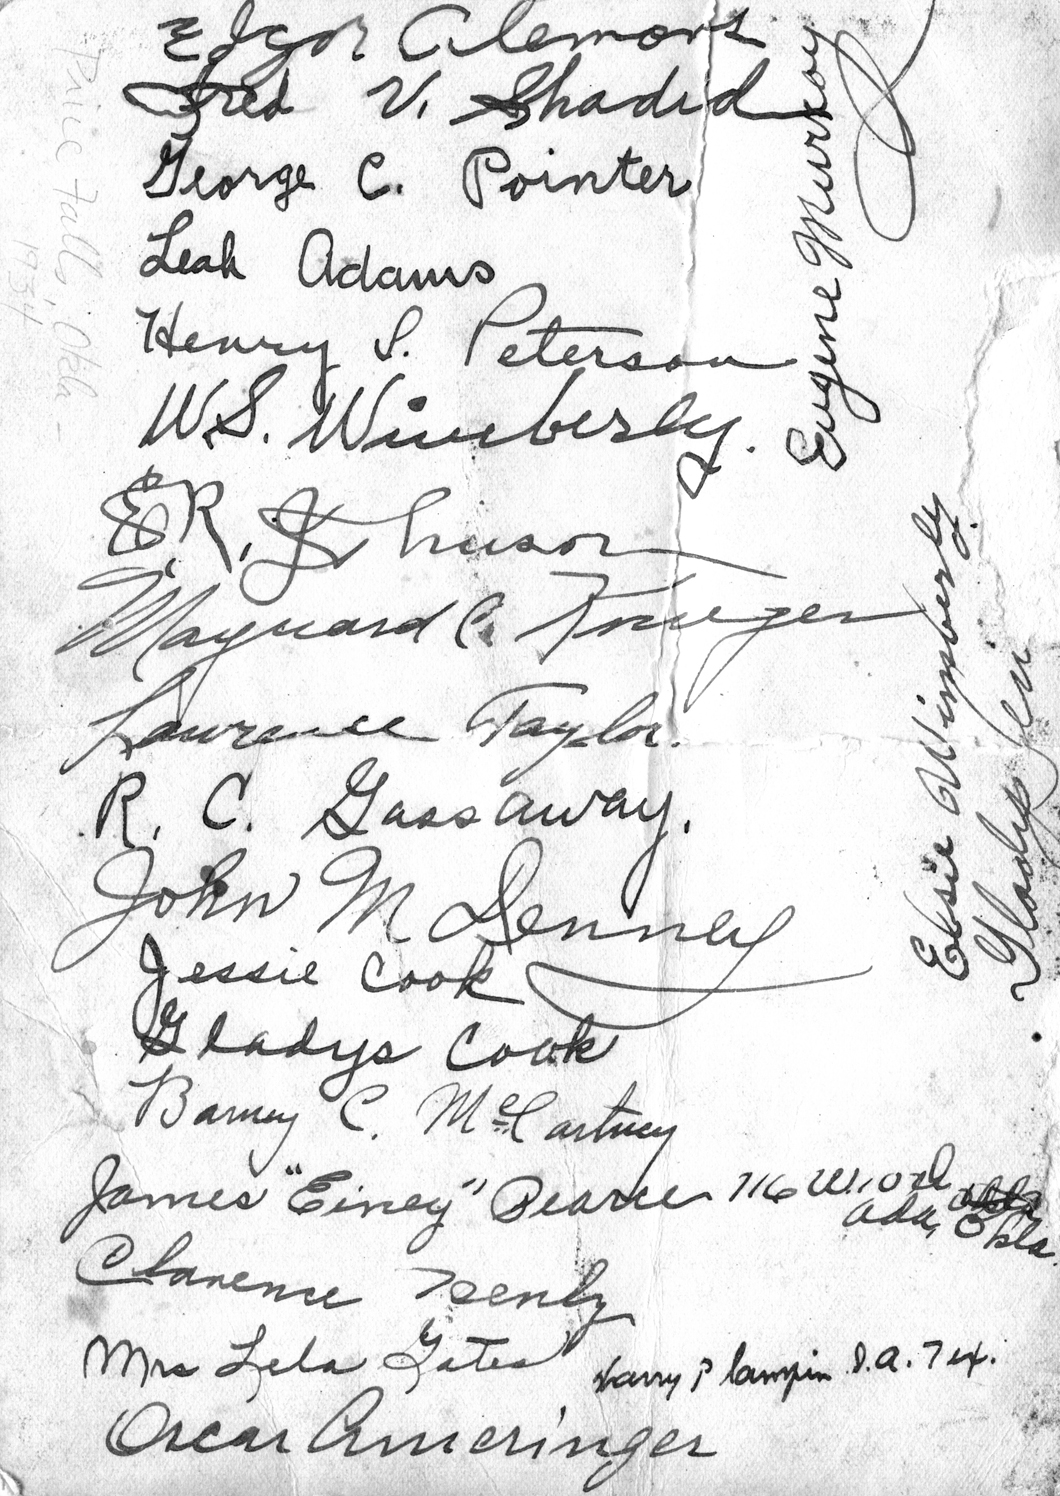 Edgar Clemons
Fred V. Shadid
George C. Pointer
Leah Adams
Henry S. Peterson
W.S. Wimberly.
E.R.
Maynard C. Krueger
Lawrence Taylor.
R. C. Gassaway.
John M Denney
Jessie Cook
Gladys Cook
Barney C. McCartney
James "Einey" Pearce 716 W. 10th
Ada, Okla.
Clarence
Mrs Lela Gates
Harry P Lampin S.A. Tex.
Oscar Ameringer
Eugene Murray
Elsie Wimberly
Gladys
Price Falls, Okla-
1934